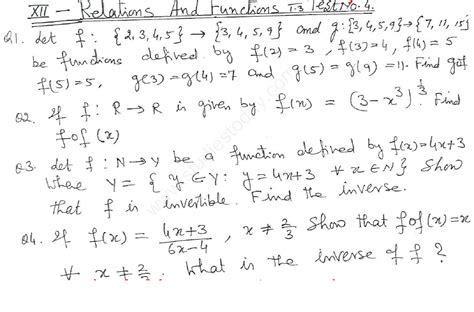 XII — Relations And Functions T-3 Test No. 4.
Q1. Let f: {2, 3, 4, 5} → {3, 4, 5, 9} and g: {3, 4, 5, 9} → {7, 11, 15}
be functions defined by f(2) = 3, f(3) = 4, f(4) = 5
f(5) = 5, g(3) = g(4) = 7 and g(5) = g(9) = 11. Find gof
Q2. If f: R → R is given by f(x) = (3 - x³)^{1/3}. Find
fof (x)
Q3. Let f: N → Y be a function defined by f(x) = 4x+3
where Y = { y ∈ Y: y = 4x+3 ∀ x ∈ N } Show
that f is invertible. Find the inverse.
Q4. If f(x) = (4x+3)/(6x-4), x ≠ 2/3 Show that fof(x) = x
∀ x ≠ 2/3. What is the inverse of f ?